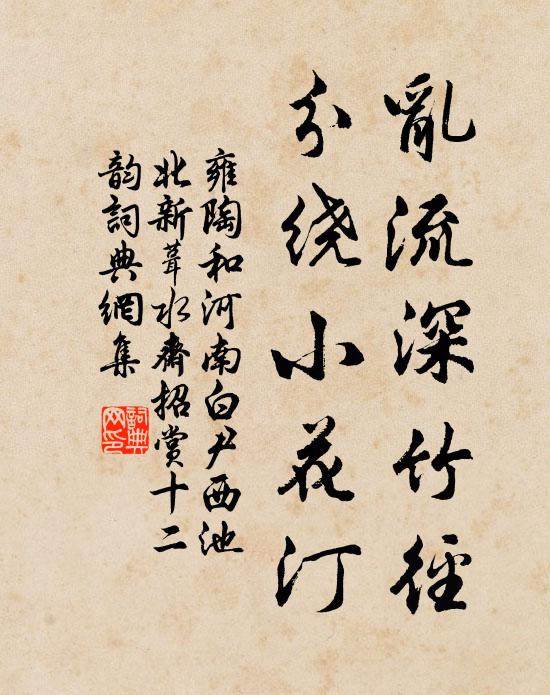 亂流深竹徑
分绕小花汀
雍陶和河南白尹西池
北新葺水齋招賞十二
韵詞典網集
詞典網印